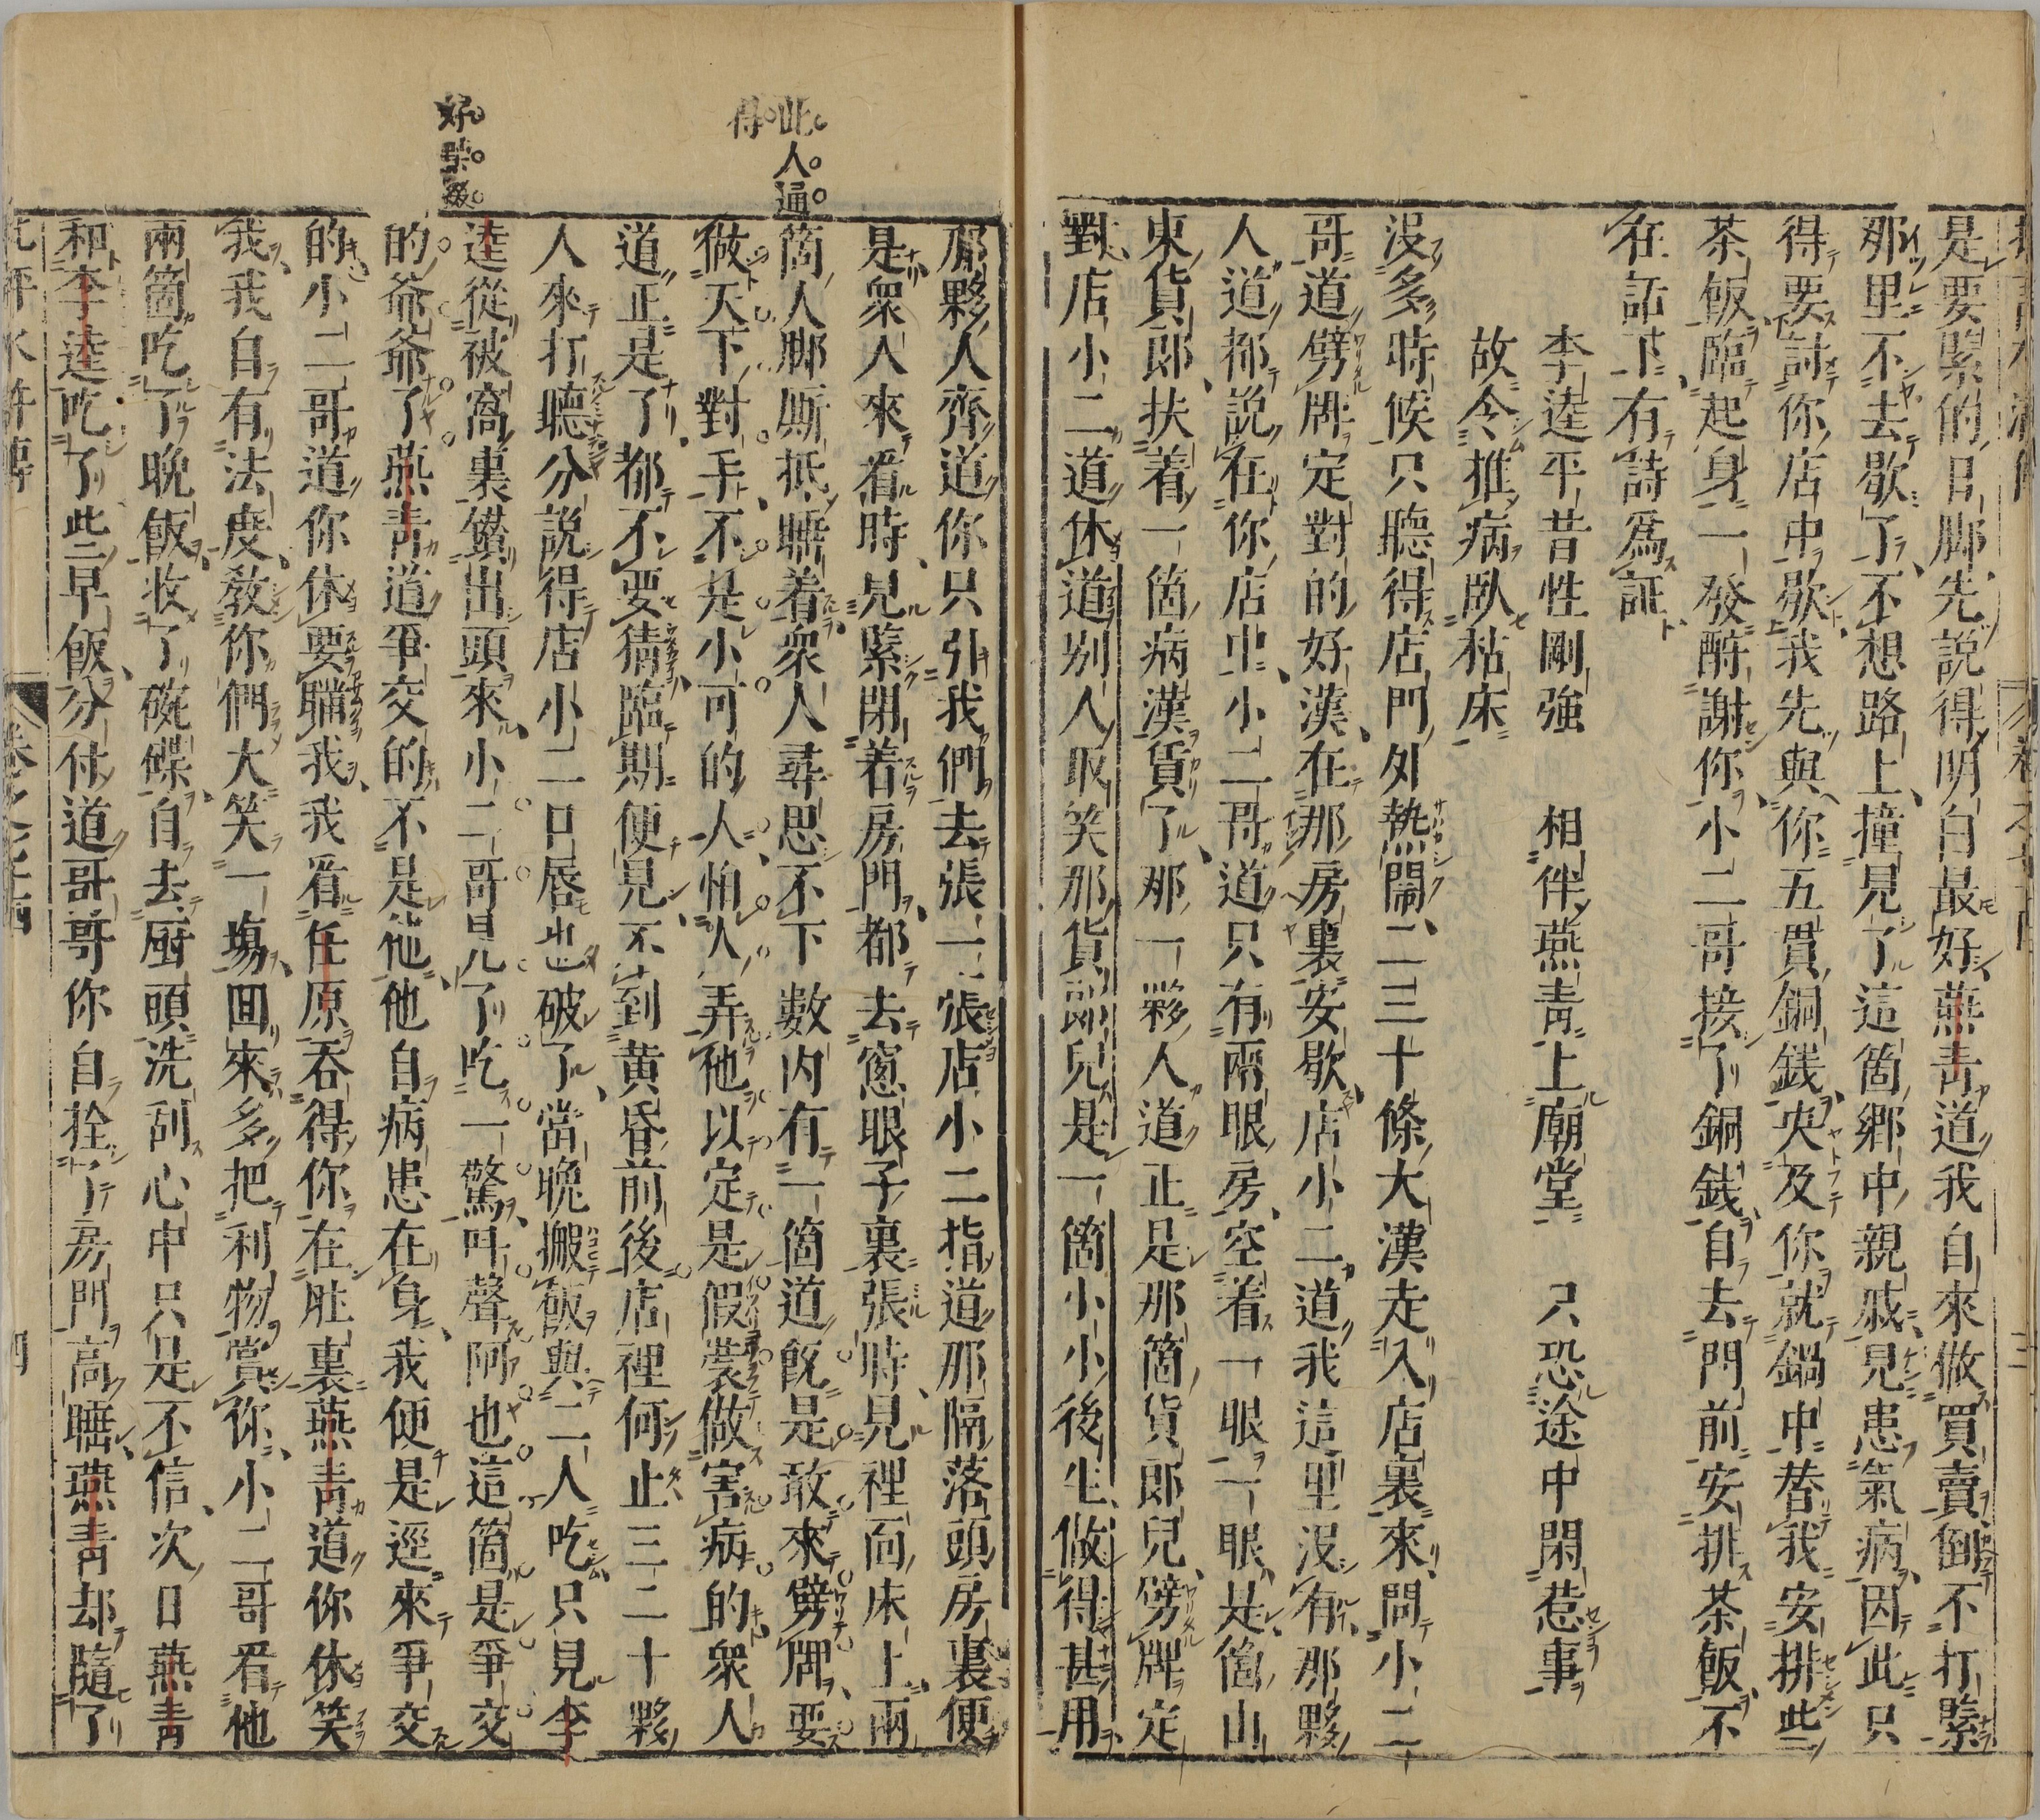 是要緊的日脚先說得明白最好燕靑道我自來做買賣倒不打緊
那里不去歇了不想路上撞見了這箇鄉中親戚見患氣病因此只
得要討你店中歇我先與你五貫銅錢央及你就鍋中替我安排些
茶飯臨起身一發酧謝你小二哥接了銅錢自去門前安排茶飯不
在話下有詩爲証
李逵平昔性剛強　相伴燕靑上廟堂　只恐途中閑惹事
故令推病臥枯床
沒多時候只聽得店門外熱鬧二三十條大漢走入店裏來問小二
哥道劈牌定對的好漢在那房裏安歇店小二道我這里沒有那夥
人道都說在你店中小二哥道只有兩眼房空着一眼一眼是箇山
東貨郎扶着一箇病漢賃了那一夥人道正是那箇貨郎兒劈牌定
對店小二道休道別人取笑那貨郎兒是一箇小小後生做得甚用
那夥人齊道你只引我們去張一張店小二指道那隔落頭房裏便
是衆人來看時見緊閉着房門都去窻眼子裏張時見裡面床上兩
箇人脚厮抵睡着衆人尋思不下數內有一箇道旣是敢來劈牌要
做天下對手不是小可的人怕人弄他以定是假裝做害病的衆人
道正是了都不要猜臨期便見不到黃昏前後店裡何止三二十夥
人來打聽分說得店小二口唇也破了當晚搬飯與二人吃只見李
逵從被窩裏鑽出頭來小二哥見了吃一驚呌聲阿也這箇是爭交
的爺爺了燕靑道爭交的不是他他自病患在身我便是逕來爭交
的小二哥道你休要瞞我我看任原吞得你在肚裏燕靑道你休笑
我我自有法度敎你們大笑一塲囬來多把利物賞你小二哥看他
兩箇吃了晚飯收了碗碟自去厨頭洗刮心中只是不信次日燕靑
和李逵吃了些早飯分付道哥哥你自拴了房門高睡燕靑却隨了
此人通
得